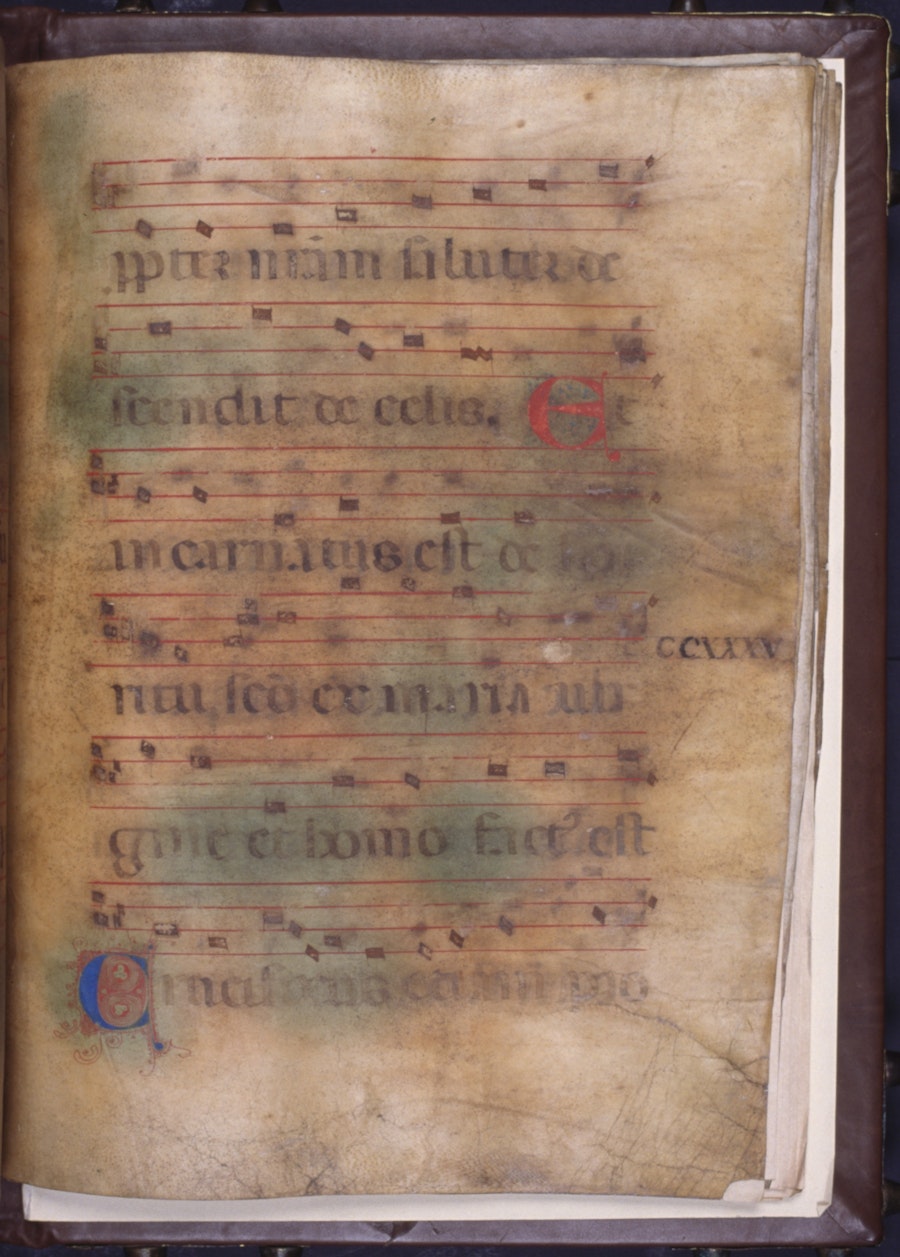 ppter nr̄am salutez de
scendit de celis. Et
incarnatus est de spi
ritu sc̄o ex maria uir
CCXXXV
gine et homo factꝰ est
Crucifixus eti am pro